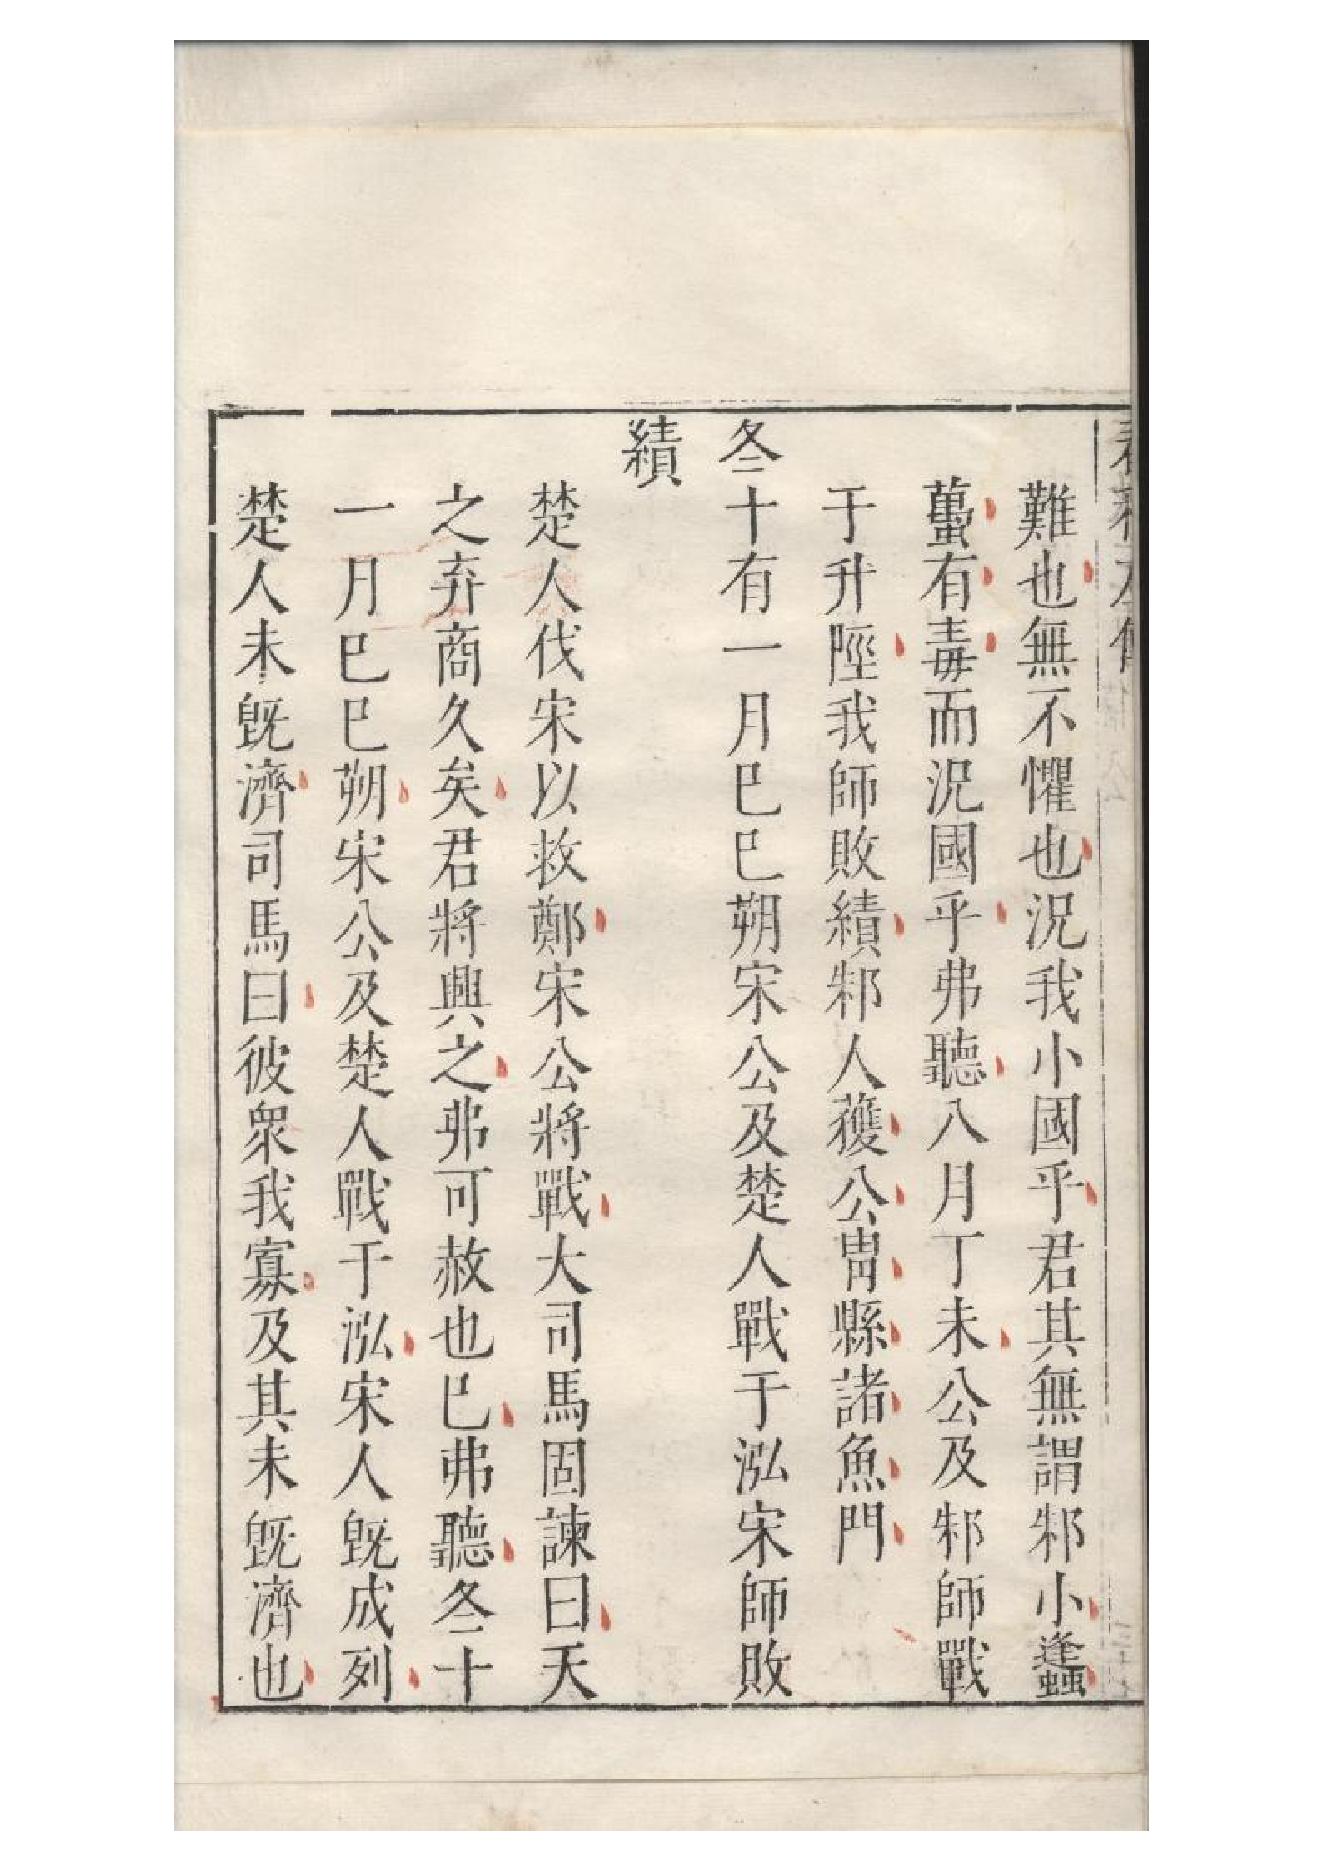 春秋左傳
難也無不懼也況我小國乎君其無謂邾小蠭
蠆有毒而況國乎弗聽八月丁未公及邾師戰
于升陘我師敗績邾人獲公胄縣諸魚門
冬十有一月巳巳朔宋公及楚人戰于泓宋師敗
績
楚人伐宋以救鄭宋公將戰大司馬固諫曰天
之弃商久矣君將興之弗可赦也巳弗聽冬十
一月巳巳朔宋公及楚人戰于泓宋人旣成列
楚人未旣濟司馬曰彼衆我寡及其未旣濟也